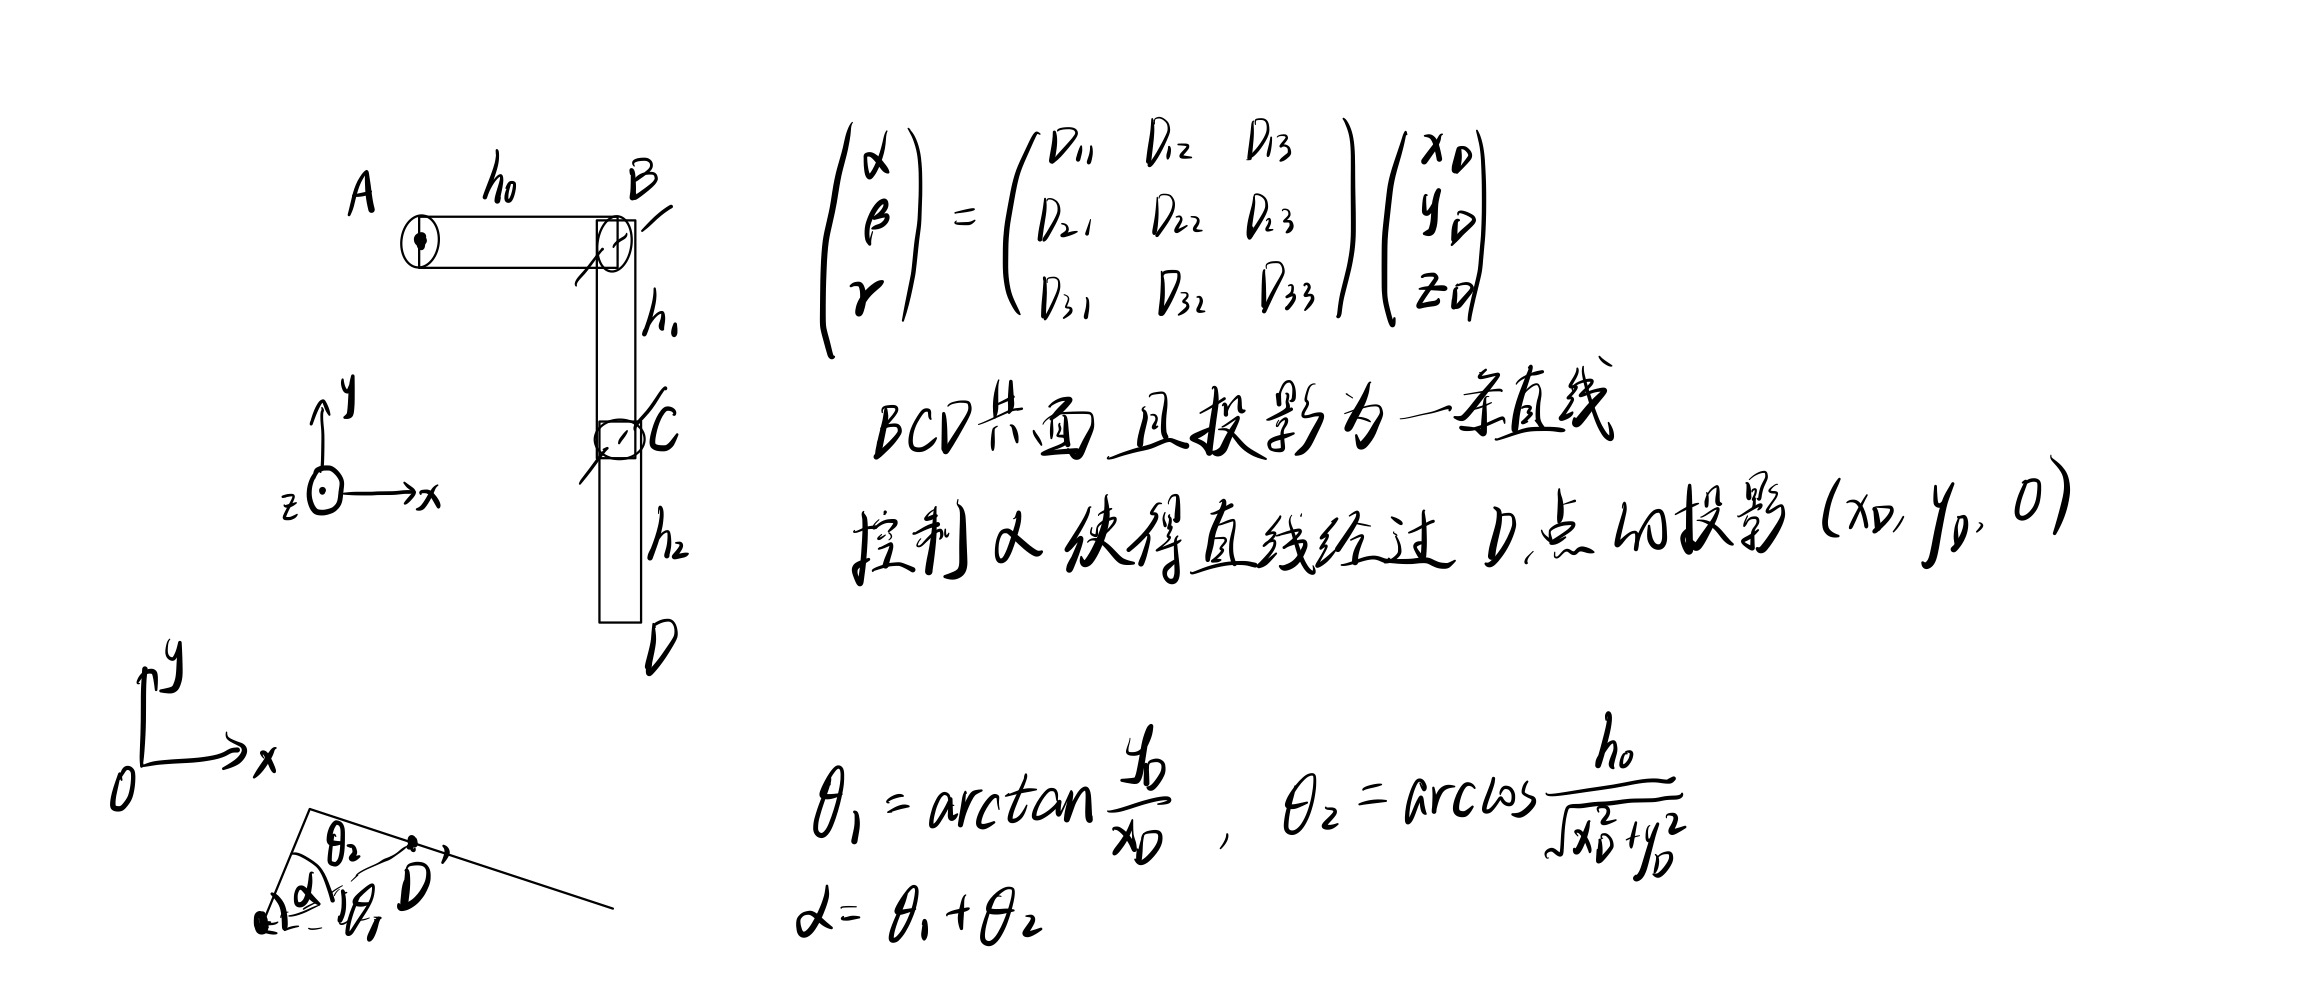 A h₀ B
h₁
C
h₂
D
y
z x
(α β γ) = (D₁₁ D₁₂ D₁₃ D₂₁ D₂₂ D₂₃ D₃₁ D₃₂ D₃₃) (x_D y_D z_D)
BCD共面 且投影为一条直线
控制α使得直线经过D点的投影(x_D, y_D, 0)
y
O x
θ₂
α θ₁ D'
θ₁ = arctan y_D/x_D , θ₂ = arccos h₀/√(x_D²+y_D²)
α = θ₁+θ₂